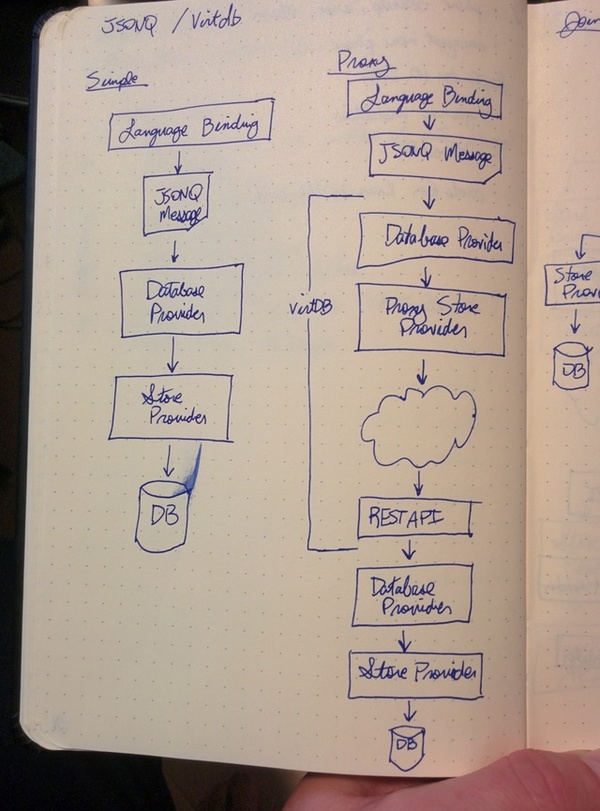 JSONQ / Virtdb
Simple
Language Binding
JSONQ
Message
Database
Provider
Store
Provider
DB
Proxy
Language Binding
JSONQ Message
Database Provider
Proxy Store
Provider
VirtDB
REST API
Database
Provider
Store Provider
DB
Join
Store
DB